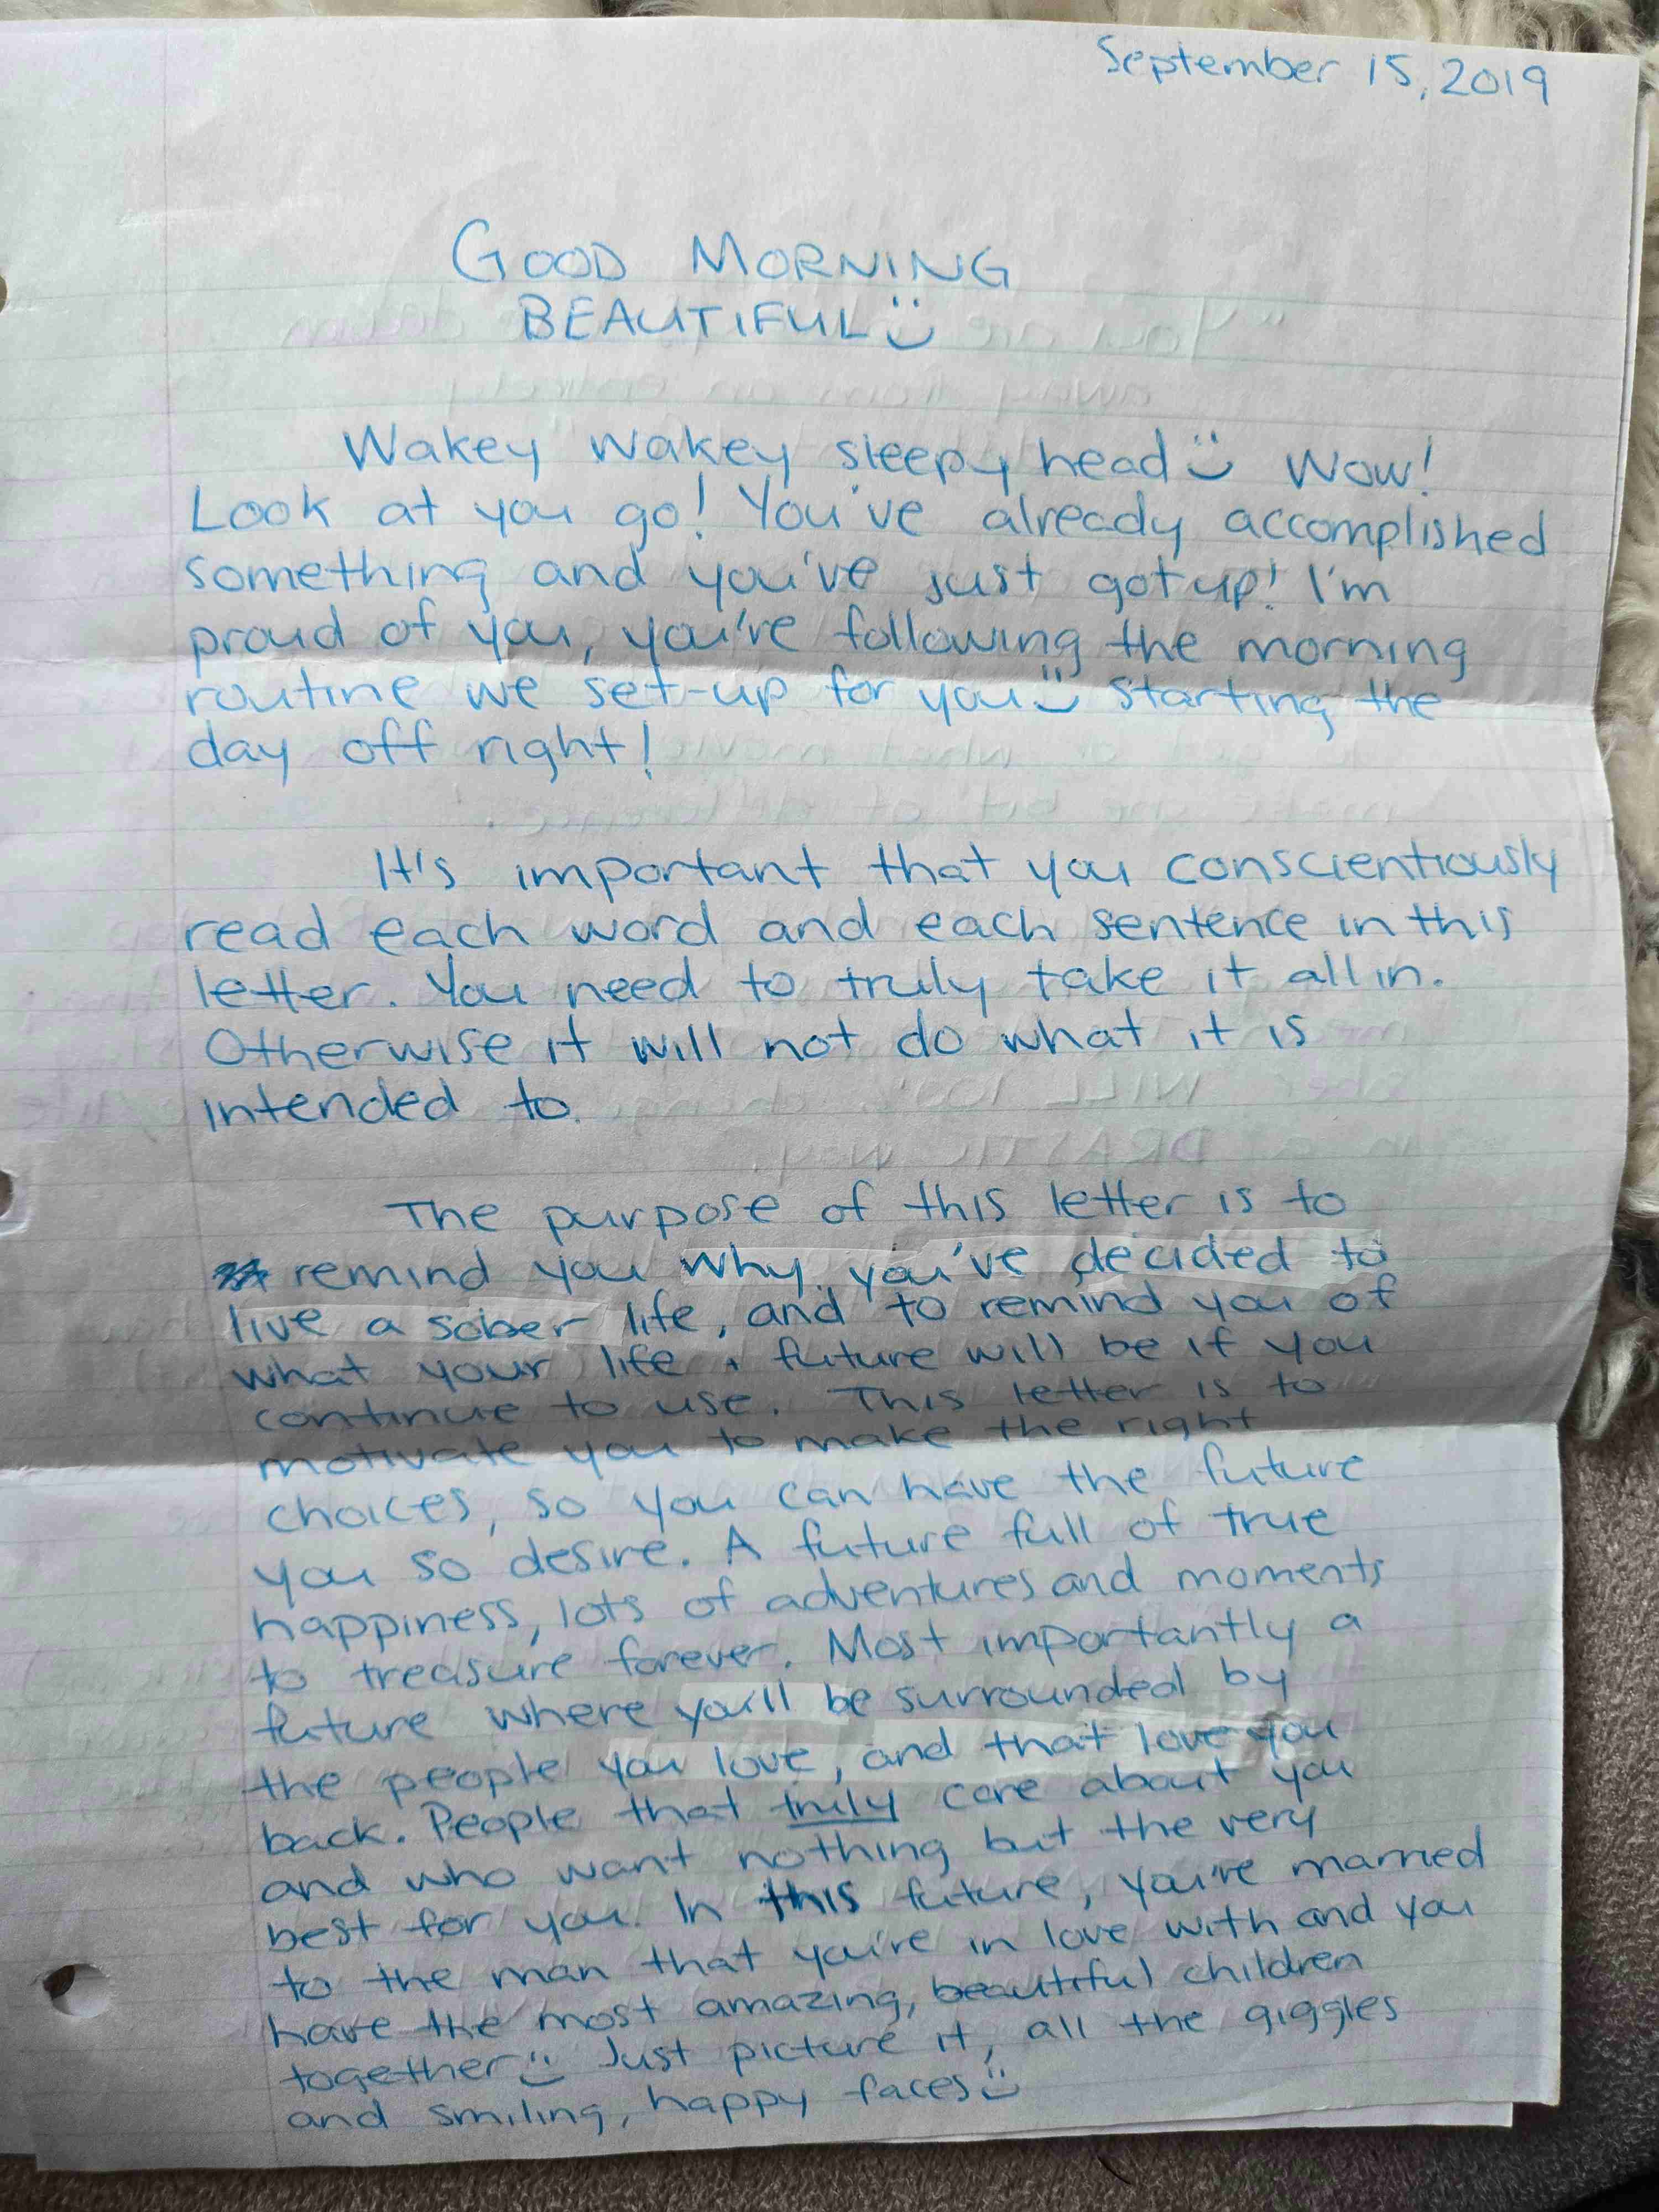 September 15, 2019
GOOD MORNING
BEAUTIFUL
Wakey wakey sleepy head Wow!
Look at you go! You've already accomplished
something and you've just got up! I'm
proud of you, you're following the morning
routine we set-up for you starting the
day off right!
It's important that you conscientiously
read each word and each sentence in this
letter. You need to truly take it all in.
Otherwise it will not do what it is
intended to.
The purpose of this letter is to
remind you why you've decided to
live a sober life, and to remind you of
what your life + future will be if you
continue to use. This letter is to
motivate you to make the right
choices, so you can have the future
you so desire. A future full of true
happiness, lots of adventures and moments
to treasure forever. Most importantly a
future where you'll be surrounded by
the people you love, and that love you
back. People that truly care about you
and who want nothing but the very
best for you. In this future, you're married
to the man that you're in love with and you
have the most amazing, beautiful children
together Just picture it, all the giggles
and smiling, happy faces